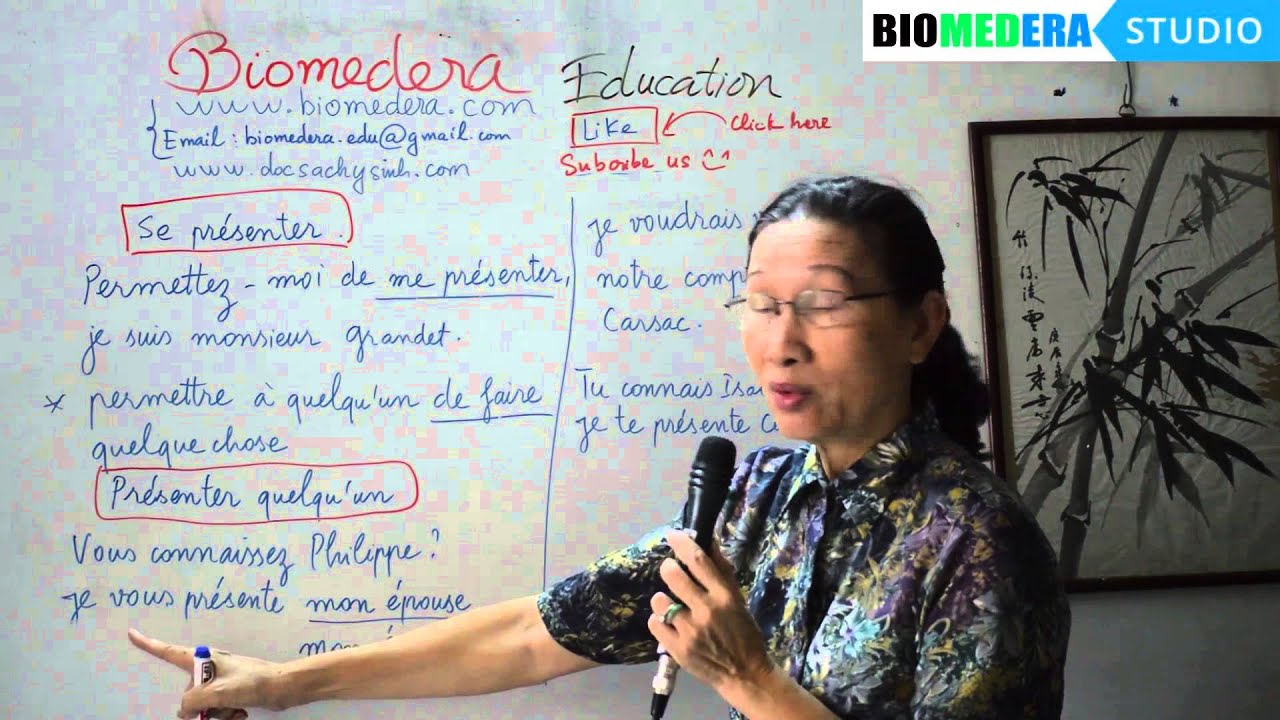 BIOMEDERA STUDIO
Biomedera Education
www.biomedera.com
Email : biomedera.edu@gmail.com
www.docsachysinh.com
Like
Click here
Subcribe us
Se présenter.
Permettez-moi de me présenter,
je suis monsieur Grandet.
* permettre à quelqu'un de faire
quelque chose
Présenter quelqu'un
Vous connaissez Philippe?
Je vous présente mon épouse
je voudrais
notre
Carsac.
Tu connais
je te présente